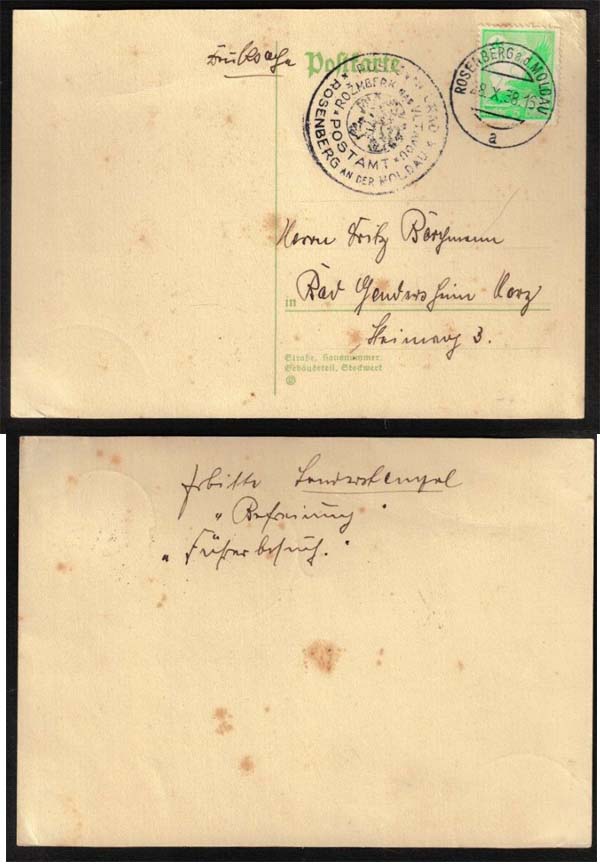 Drucksache
Postkarte
POSTAMT
ROSENBERG AN DER MOLDAU
ROŽMBERK nad VLTAVOU
ROSENBERG a.d. MOLDAU
28.X.38.16
a
Herrn Fritz Borchmann
in Bad Gandersheim Harz
3.
Straße, Hausnummer,
Gebäudeteil, Stockwerk
Erbitte Sonderstempel
"Befreiung"
"Führerbesuch."